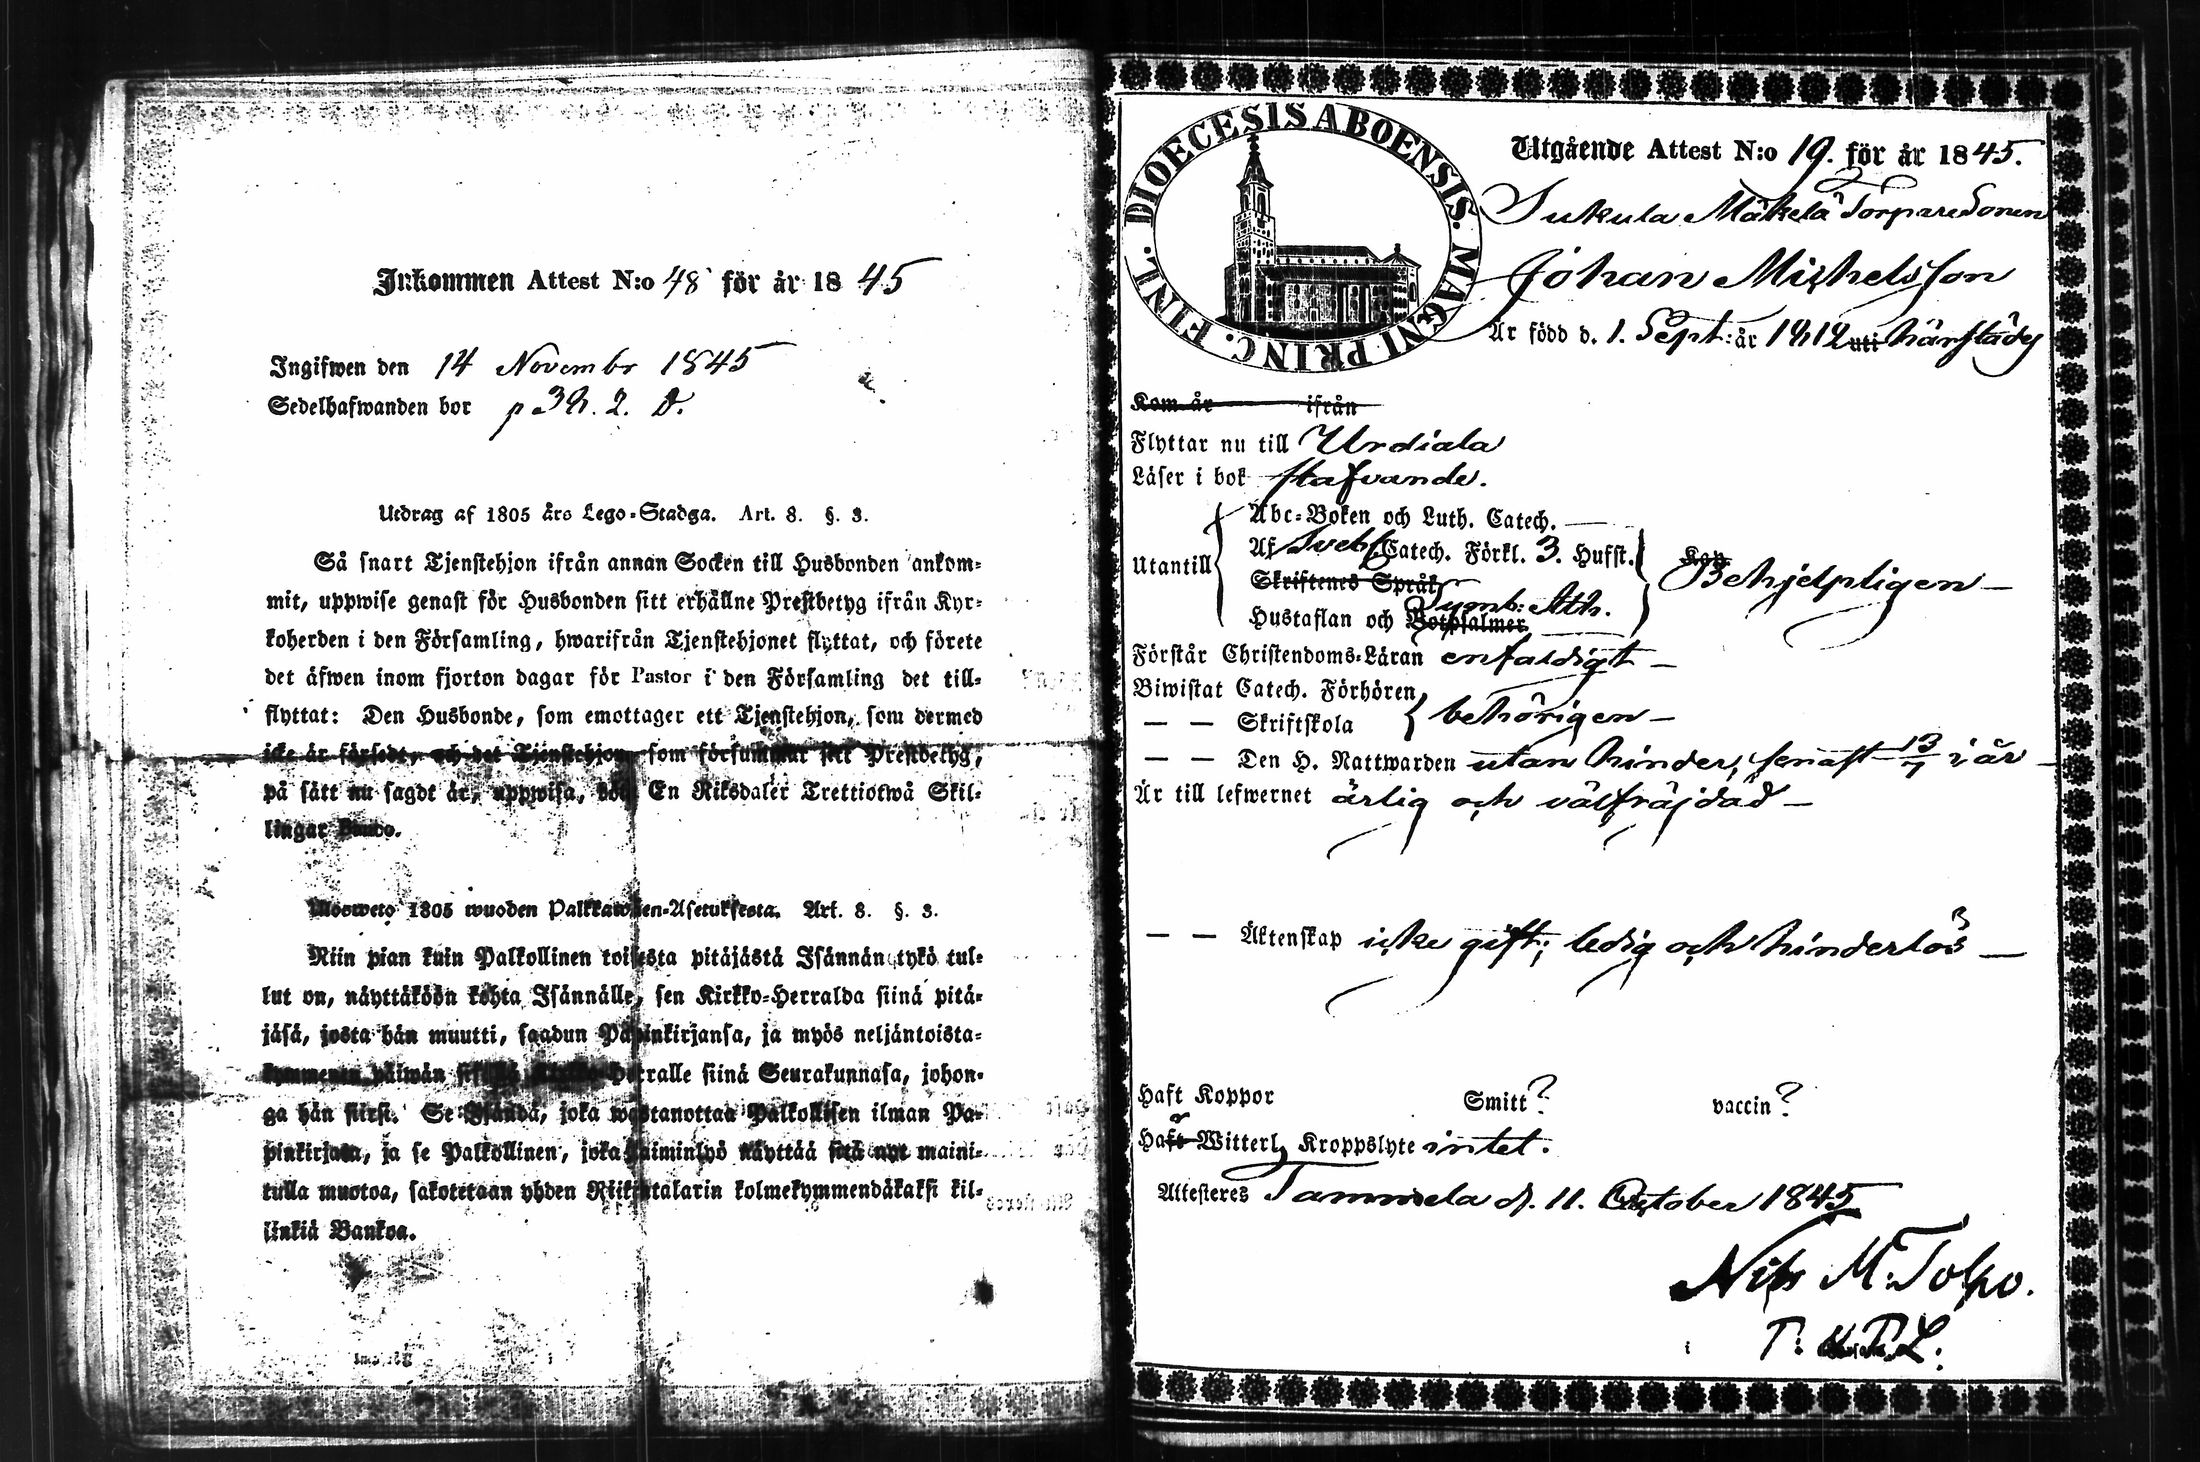 Inkommen Attest N:o 48 för år 1845
Ingifwen den 14 Novembr 1845
Sedelhafwanden bor p 39. 2. D.
Utdrag af 1805 års Lego-Stadga. Art. 8. §. 3.
Så snart Tjenstehjon ifrån annan Socken till Husbonden ankom-
mit, uppwise genast för Husbonden sitt erhållne Prestbetyg ifrån Kyr-
koherden i den Församling, hwarifrån Tjenstehjonet flyttat, och förete
det äfwen inom fjorton dagar för Pastor i den Församling det till-
flyttat: Den Husbonde, som emottager ett Tjenstehjon, som dermed
icke är försedt, och det Tjenstehjon som försummar sitt Prestbetyg,
på sätt nu sagdt är, uppwisa, böte En Riksdaler Trettiotwå Skil-
lingar Banco.
Ulosweto 1805 wuoden Palkkawäen-Asetuksesta. Art. 8. §. 3.
Niin pian kuin Palkollinen toisesta pitäjästä Isännän tykö tul-
lut on, näyttäköön kohta Isännälle, sen Kirkko-Herralda siinä pitä-
jäsä, josta hän muutti, saadun Papinkirjansa, ja myös neljäntoista-
kymmenen päiwän Herralle siinä Seurakunnasa, johon-
ga hän siirsi. Se Isändä, joka wastanottaa Palkollisen ilman Pa-
pinkirjata, ja se Palkollinen, joka laiminlyö näyttää sitä nyt maini-
tulla muotoa, sakotetaan yhden Riikintalarin kolmekymmendäkaksi kil-
linkiä Bankoa.
DIOECESIS ABOENSIS. MAGNI PRINC. FINL.
Utgående Attest N:o 19. för år 1845.
Sukula Mäkelä Torparesonen
Johan Michelsson
Är född d. 1. Sept: år 1812 uti härstädes
Kom år ifrån
Flyttar nu till Urdiala
Läser i bok stafvande.
Utantill
Abc-Boken och Luth. Catech. —
Af Sveb. Catech. Förkl. 3. Hufst.
Skriftenes Språk
Symb: Ath.
Hustaflan och Botpsalmer.
Behjelpligen —
Förstår Christendoms-Läran enfaldigt —
Biwistat Catech. Förhören
— — Skriftskola
behörigen —
— — Den H. Nattwarden utan hinder, senast 13/7 i år —
Är till lefwernet ärlig och välfräjdad —
— — Äktenskap icke gift; ledig och hinderlös —
Haft Koppor Smitt? vaccin?
Haft Witterl. Kroppslyte intet.
Attesteres Tammela d. 11. October 1845
Nils M: Tolpo.